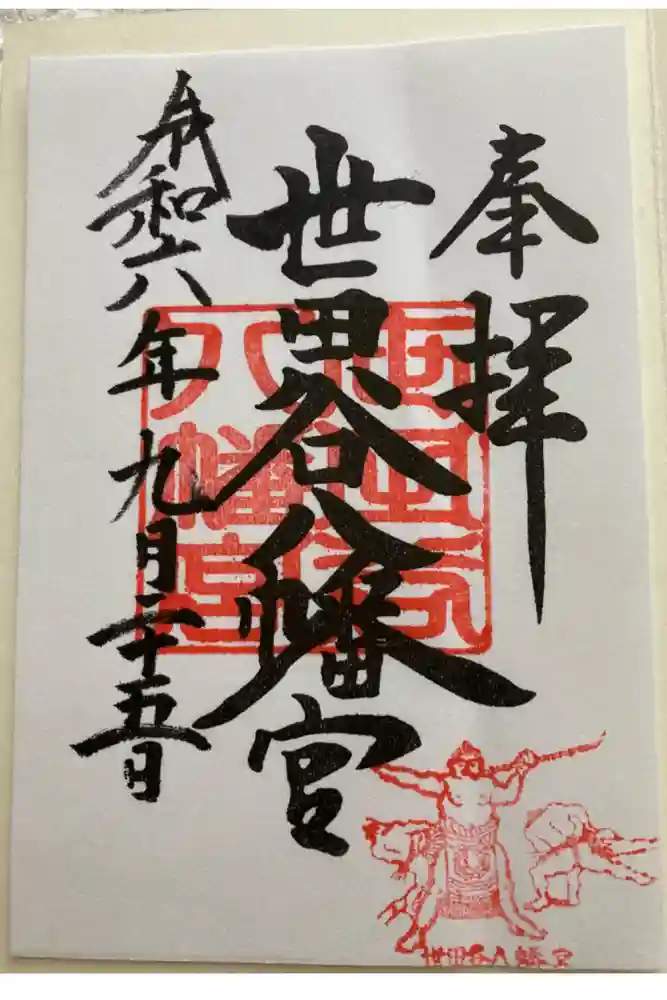 奉拝
世田谷八幡宮
令和六年九月二十五日
世田谷
八幡宮
世田谷八幡宮